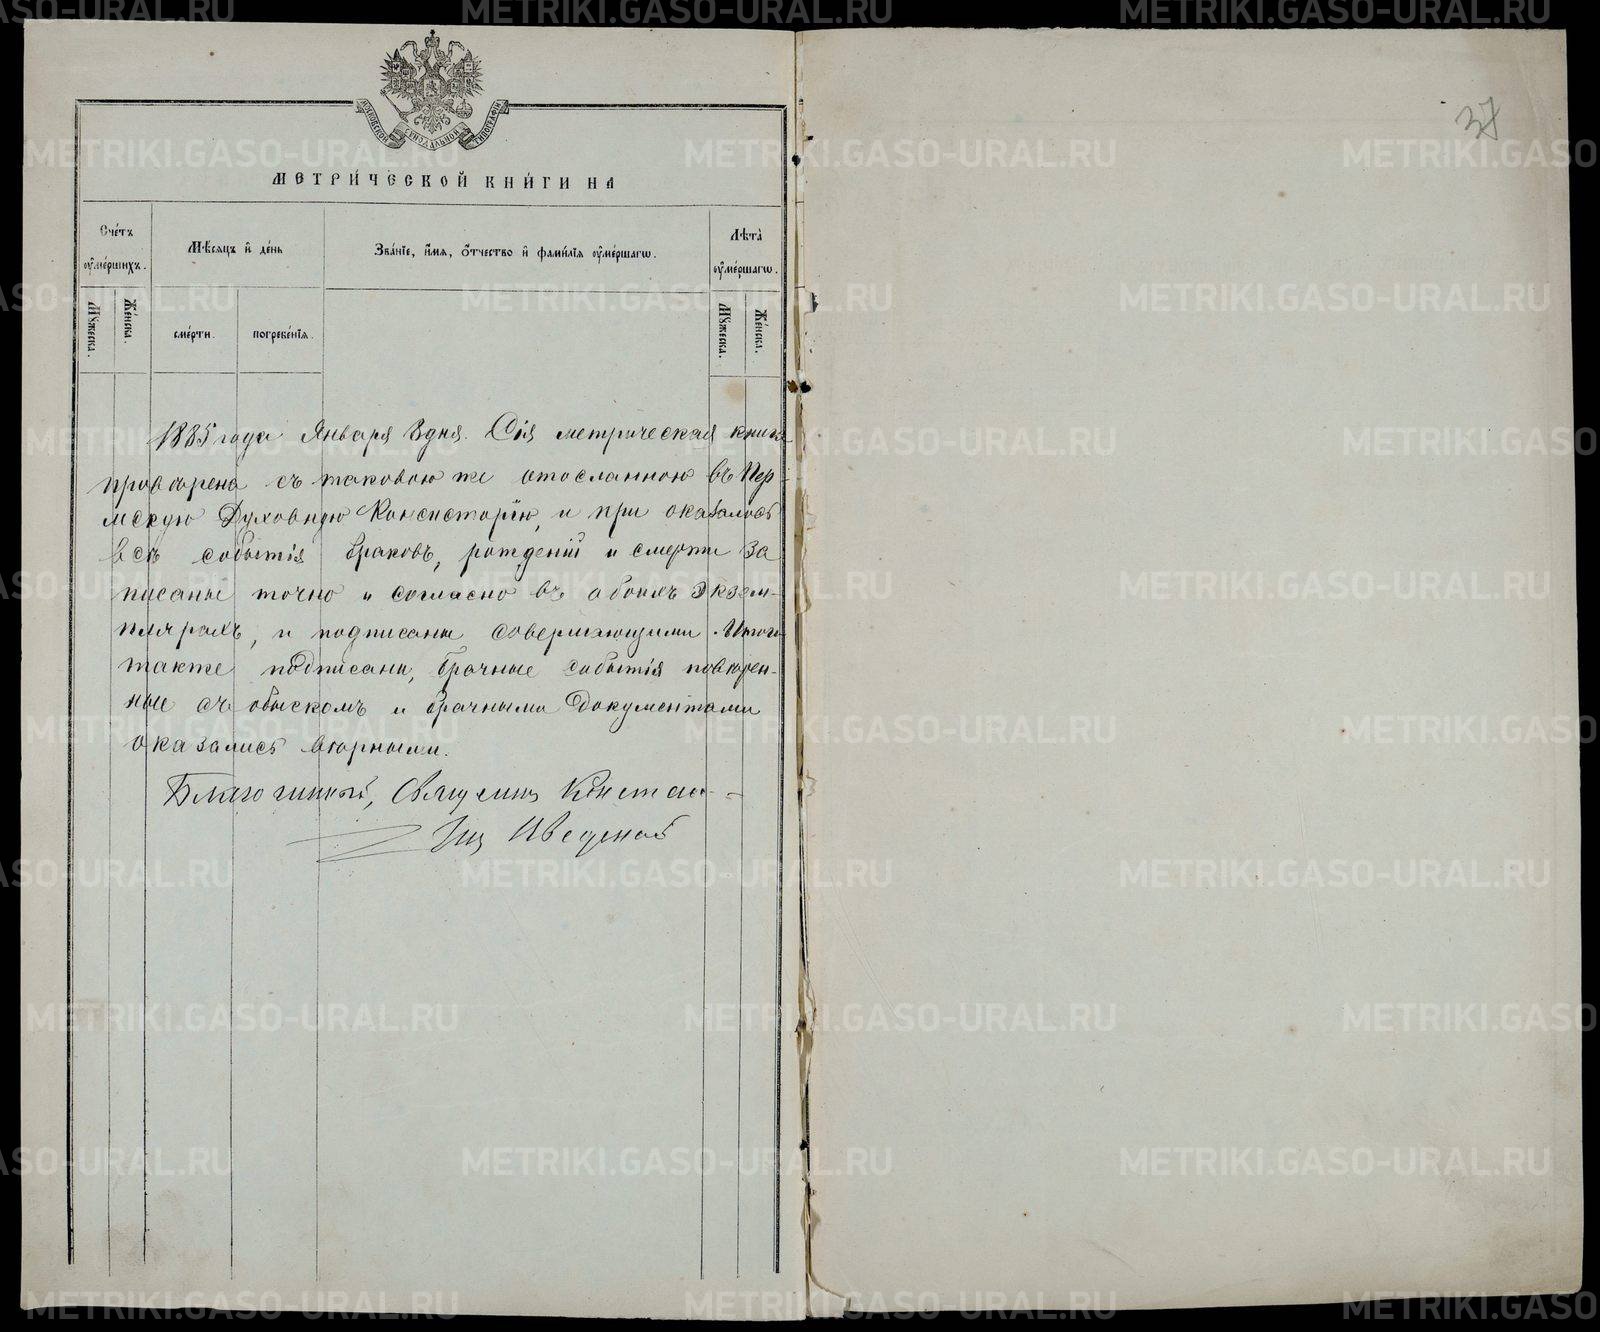 37
МОСКОВСКОЙ СѴНОДАЛЬНОЙ ТИПОГРАФІИ
МЕТРИ́ЧЕСКОЙ КНИ́ГИ НА
Сче́тъ оу҆ме́ршихъ.
Мѣ́сяцъ и҆ де́нь
Зва́нїе, и҆́мя, ѻ҆́тчество и҆ фами́лїя оу҆ме́ршагѡ.
Лѣ́та оу҆ме́ршагѡ.
Мꙋ́жеска.
Же́нска.
сме́рти.
погребе́нїя.
Мꙋ́жеска.
Же́нска.
1885 года Января 8 дня. Сія метрическая книга
проверена съ таковою же отосланною въ Пер-
мскую Духовную Консисторію, и при оказалось
всѣ событія браковъ, рожденій и смерти за
писаны точно и согласно въ обоихъ Экзем-
плярахъ, и подписаны совершающими. Итоги
также подписаны, брачные событія повѣрен-
ные съ обыскомъ и брачными документами
оказались вѣрными.
Благочинный, Священ Констан-
тин
METRIKI.GASO-URAL.RU